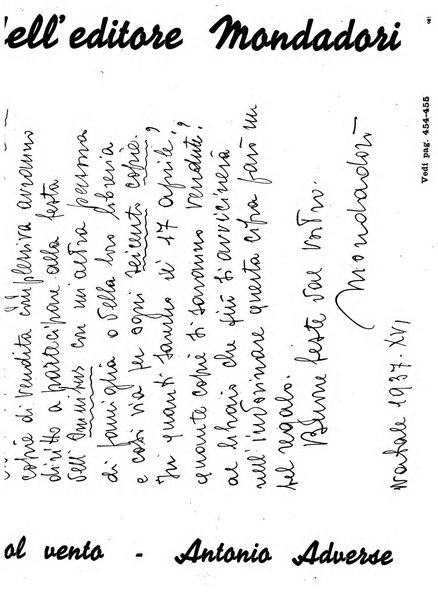 dell'editore Mondadori
copie di vendita complessiva avranno
diritto a partecipare alla festa
dell'Omnibus con un'altra persona
di famiglia o della loro libreria
e così via per ogni seicento copie.
In quanti saremo il 17 aprile?
quante copie si saranno vendute?
al libraio che più si avvicinerà
nell'indovinare questa cifra farò un
bel regalo.
Buone feste dal vostro
Mondadori
Natale 1937. XVI
Vedi pag. 454-455
ol vento - Antonio Adverse